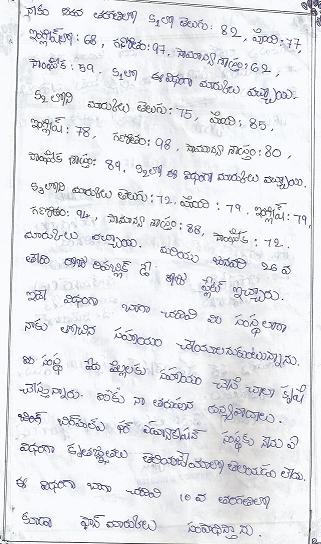 నాకు 8వ తరగతిలో S1లో తెలుగు: 82, హింది: 77,
ఇంగ్లీష్‌లో: 68, గణితం: 97, సామాన్య శాస్త్రం: 62,
సాంఘిక: 59. S1లో ఈ విధంగా మార్కులు వచ్చాయి.
S2లోని మార్కులు తెలుగు: 75, హింది: 85,
ఇంగ్లీష్: 78, గణితం: 98, సామాన్య శాస్త్రం: 80,
సాంఘిక శాస్త్రం: 89, S2లో ఈ విధంగా మార్కులు వచ్చాయి.
S3లోని మార్కులు తెలుగు: 72, హింది: 79, ఇంగ్లీష్: 79,
గణితం: 94, సామాన్య శాస్త్రం: 88, సాంఘిక: 72.
మార్కులు వచ్చాయి. మరియు జనవరి 26వ
తేది రిపబ్లిక్ డే ప్లేట్ ఇచ్చారు.
ఇదే విధంగా బాగా చదివి మీ సంస్థ ద్వారా
నాకు లాంటి సహాయం చేయాలనుకుంటున్నాను.
మీ సంస్థ పేద పిల్లలకు సహాయం చేసి చాలా కృషి
చేస్తున్నారు. మీకు నా తరుపున ధన్యవాదాలు.
సంస్థకు నేను ఏ
విధంగా కృతజ్ఞతలు తెలియజేయాలో తెలియడం లేదు.
ఈ విధంగా బాగా చదివి 10వ తరగతిలో
కూడా మార్కులు సంపాదిస్తాను.